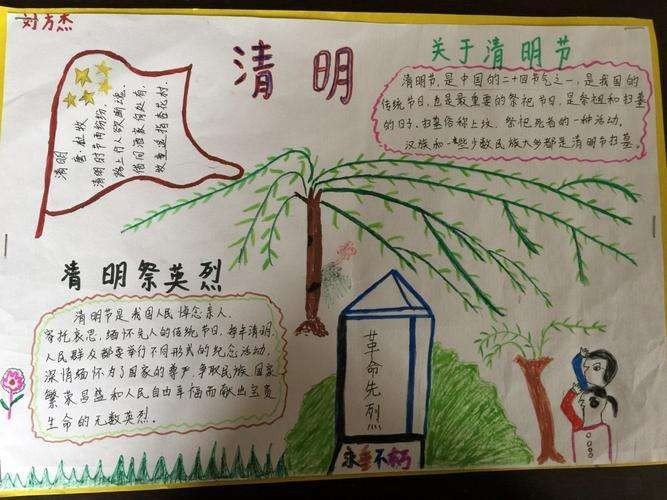 刘方杰
清明
关于清明节
清明节,是中国的二十四节气之一,是我国的
传统节日,也是最重要的祭祀节日,是祭祖和扫墓
的日子,扫墓俗称上坟,祭祀死者的一种活动。
汉族和一些少数民族大多都是清明节扫墓。
清明
唐·杜牧
清明时节雨纷纷,
路上行人欲断魂。
借问酒家何处有,
牧童遥指杏花村。
清明祭英烈
清明节是我国人民悼念亲人、
寄托哀思,缅怀先人的传统节日,每年清明,
人民群众都要举行不同形式的纪念活动,
深情缅怀为了国家的尊严,争取民族、国家
繁荣昌盛和人民自由幸福而献出宝贵
生命的无数英烈。
革命先烈
永垂不朽